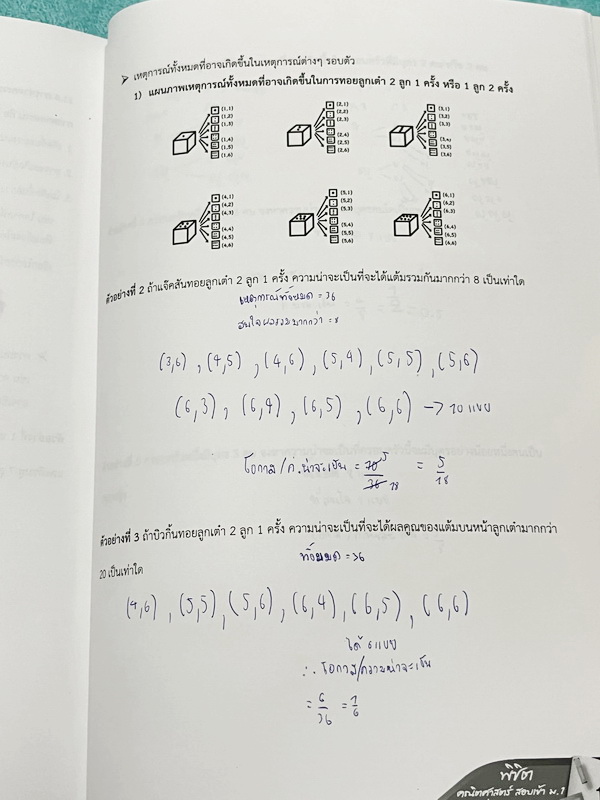 ➤ เหตุการณ์ทั้งหมดที่อาจเกิดขึ้นในเหตุการณ์ต่างๆ รอบตัว
1) แผนภาพเหตุการณ์ทั้งหมดที่อาจเกิดขึ้นในการทอยลูกเต๋า 2 ลูก 1 ครั้ง หรือ 1 ลูก 2 ครั้ง
(1,1) (2,1) (3,1)
(1,2) (2,2) (3,2)
(1,3) (2,3) (3,3)
(1,4) (2,4) (3,4)
(1,5) (2,5) (3,5)
(1,6) (2,6) (3,6)
(4,1) (5,1) (6,1)
(4,2) (5,2) (6,2)
(4,3) (5,3) (6,3)
(4,4) (5,4) (6,4)
(4,5) (5,5) (6,5)
(4,6) (5,6) (6,6)
ตัวอย่างที่ 2 ถ้าแจ๊คสันทอยลูกเต๋า 2 ลูก 1 ครั้ง ความน่าจะเป็นที่จะได้แต้มรวมกันมากกว่า 8 เป็นเท่าใด
เหตุการณ์ทั้งหมด = 36
สนใจผลรวมมากกว่า = 8
(3,6), (4,5), (4,6), (5,4), (5,5), (5,6)
(6,3), (6,4), (6,5), (6,6) → 10 แบบ
โอกาส/ค.น่าจะเป็น = 10 5 / 36 18 = 5/18
ตัวอย่างที่ 3 ถ้าบิวกิ้นทอยลูกเต๋า 2 ลูก 1 ครั้ง ความน่าจะเป็นที่จะได้ผลคูณของแต้มบนหน้าลูกเต๋ามากกว่า
20 เป็นเท่าใด
ทั้งหมด = 36
(4,6), (5,5), (5,6), (6,4), (6,5), (6,6)
ได้ 6 แบบ
∴ โอกาส/ความน่าจะเป็น
= 6/36 = 1/6
พิชิต
คณิตศาสตร์ สอบเข้า ม.1